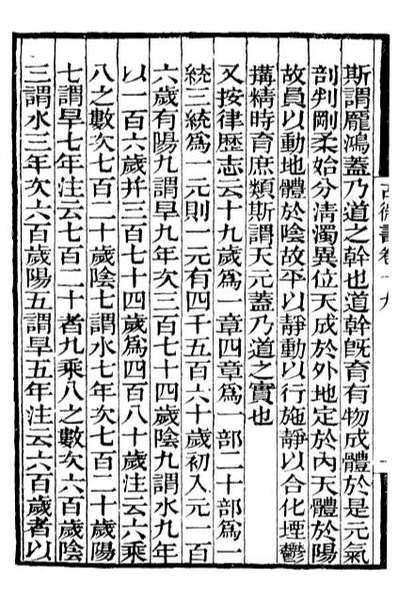 古微書卷十九
斯謂龎鴻蓋乃道之幹也道幹旣育有物成體於是元氣
剖判剛柔始分淸濁異位天成於外地定於內天體於陽
故員以動地體於陰故平以靜動以行施靜以合化堙鬱
搆精時育庶類斯謂天元蓋乃道之實也
又按律歷志云十九歲爲一章四章爲一部二十部爲一
統三統爲一元則一元有四千五百六十歲初入元一百
六歲有陽九謂旱九年次三百七十四歲陰九謂水九年
以一百六歲并三百七十四歲爲四百八十歲注云六乘
八之數次七百二十歲陰七謂水七年次七百二十歲陽
七謂旱七年注云七百二十者九乘八之數次六百歲陰
三謂水三年次六百歲陽五謂旱五年注云六百歲者以